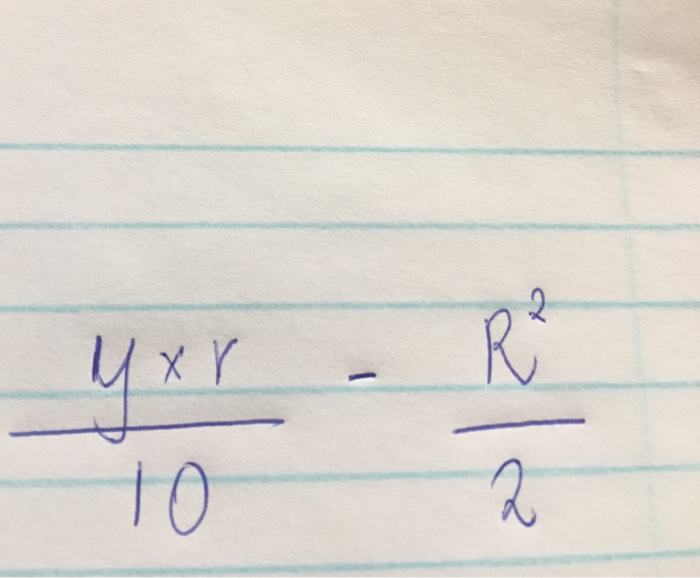 y × r / 10 - R² / 2